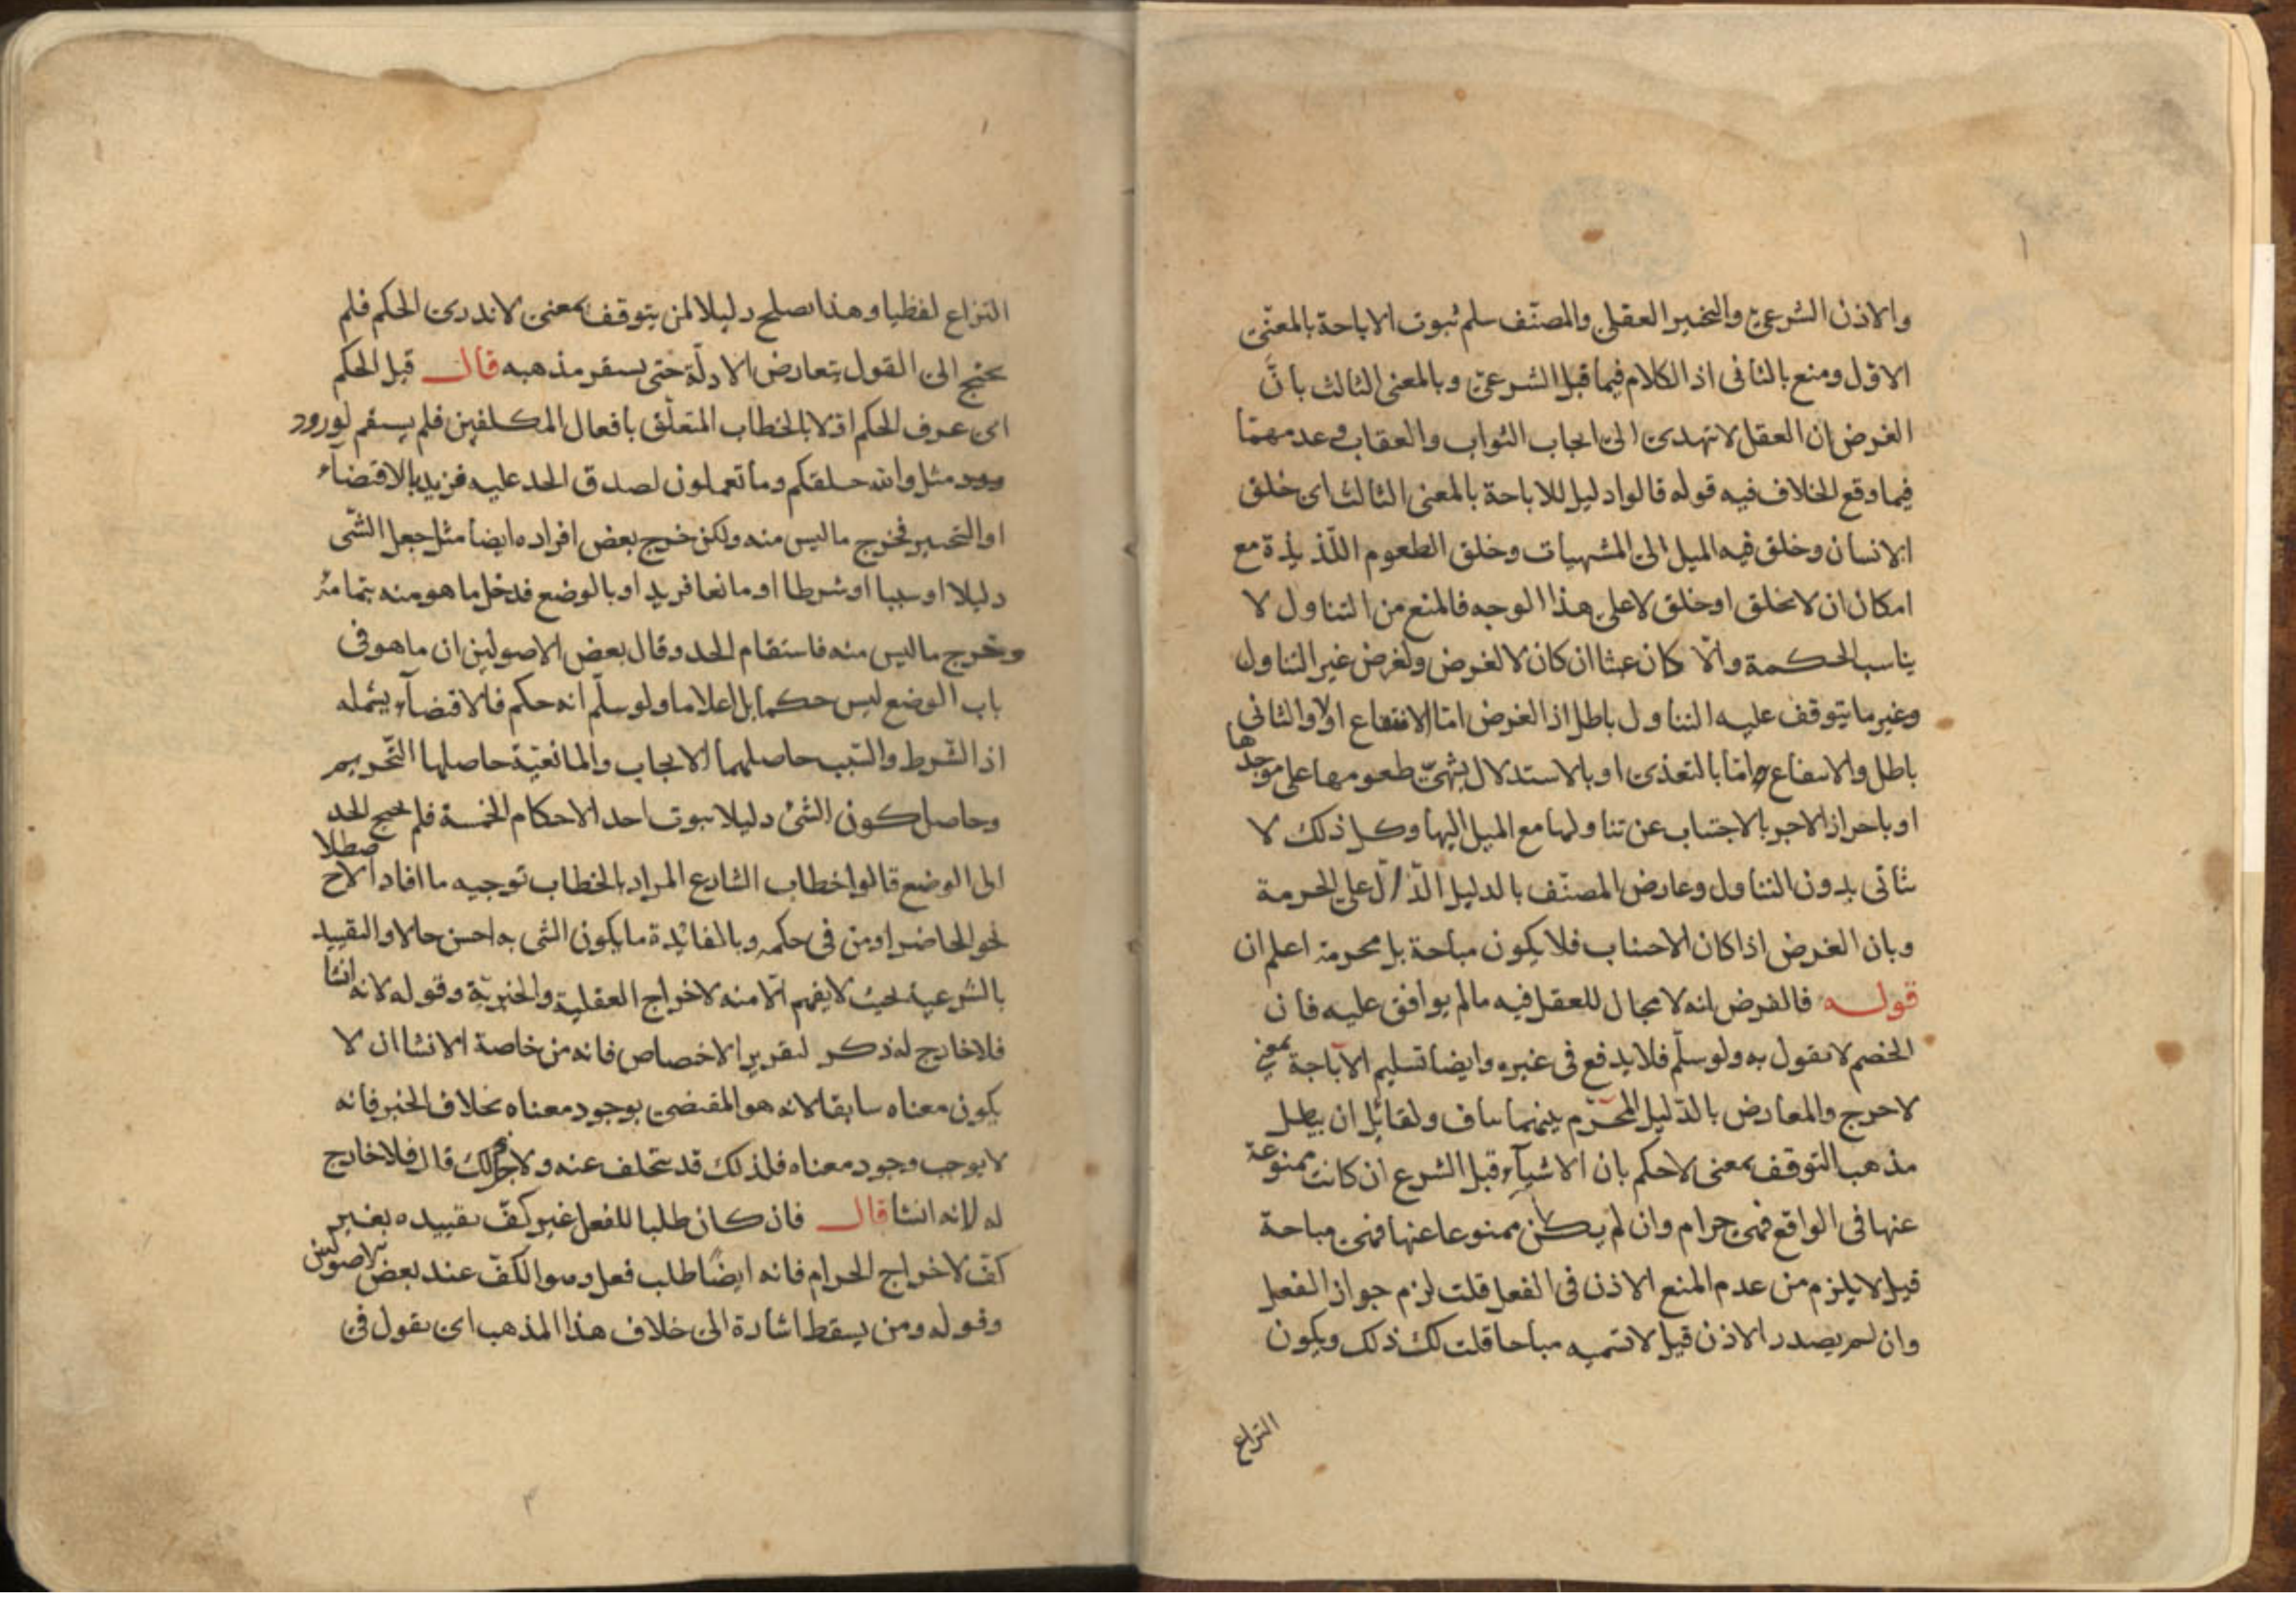 والاذن الشرعي والتخيير العقلي والمصنّف سلم ثبوت الاباحة بالمعنى
الاوّل ومنع بالثانى اذ الكلام فيما قبل الشرعي وبالمعنى الثالث بانّ
الغرض ان العقل لا تهدى الى ايجاب الثواب والعقاب وعدمهما
فيما وقع الخلاف فيه قوله قالوا دليل للاباحة بالمعنى الثالث اى خلق
الانسان وخلق فيه الميل الى المشهيات وخلق الطعوم اللّذيذة مع
امكان ان لا يخلق او خلق لا على هذا الوجه فالمنع من التناول لا
يناسب الحكمة والّا كان عبثا ان كان لا لغرض ولغرض غير التناول
وغير ما يتوقف عليه التناول باطل اذ الغرض امّا الانتفاع اولا والثانى
باطل والانتفاع امّا بالتغذى او بالاستدلال بشهىّ طعومها على موجدها
او باحراز الاجر بالاجتناب عن تناولها مع الميل اليها وكل ذلك لا
يتأتى بدون التناول وعارض المصنّف بالدليل الدّالّ على الحرمة
وبان الغرض اذا كان الاجتناب فلا يكون مباحة بل محرمة اعلم ان
قوله فالفرض انه لا مجال للعقل فيه ما لم يوافق عليه فان
الخصم لا يقول به ولو سلّم فلا يدفع فى غيره وايضا تسليم الاباحة بمعنى
لا حرج والمعارض بالدّليل المحرّم بينهما تناف ولقائل ان يبطل
مذهب التوقف بمعنى لا حكم بان الاشيآء قبل الشرع ان كانت ممنوعة
عنها فى الواقع فهى حرام وان لم يكن ممنوعا عنها فهى مباحة
قيل لا يلزم من عدم المنع الاذن فى الفعل قلت لزم جواز الفعل
وان لم يصدر الاذن قيل لا تسميه مباحا قلت لك ذلك ويكون
النزاع
النزاع لفظيا وهذا يصلح دليلا لمن يتوقف بمعنى لا ندرى الحكم فلم
يحتج الى القول بتعارض الادلّة حتى يستقر مذهبه قال قيل الحكم
اى عرف الحكم اولا بالخطاب المتعلّق بافعال المكلفين فلم يستقم لورود
مثل والله خلقكم وما تعملون لصدق الحد عليه فزيد بالاقتضآء
او التخيير فخرج ما ليس منه ولكن خرج بعض افراده ايضا مثل جعل الشّى
دليلا او سببا او شرطا او مانعا فزيد او بالوضع فدخل ما هو منه بتمامه
وخرج ما ليس منه فاستقام الحد وقال بعض الاصولين ان ما هو فى
باب الوضع ليس حكما بل اعلاما ولو سلّم انه حكم فالاقتضآء يشمله
اذ الشّرط والسّبب حاصلهما الايجاب والمانعيّة حاصلها التّحريم
وحاصل كون الشئ دليلا ثبوت احد الاحكام الخمسة فلم يحتج الحد
الى الوضع قالوا خطاب الشارع المراد بالخطاب توجيه ما افاد الاصطلاح
نحو الحاضر او من فى حكمه وبالفائدة ما يكون الشى به احسن حالا والتقييد
بالشرعية بحيث لا يفهم الّا منه لاخراج العقلية والخبريّة وقوله لانه انشا
فلا خارج له ذكر لتقرير الاخصاص فانه من خاصة الانشا ان لا
يكون معناه سابقا لانه هو المقتضى بوجود معناه بخلاف الخبر فانه
لا يوجب وجود معناه فلذلك قد يتخلف عنه ولاجل ذلك قال فلا خارج
له لانه انشا قال فان كان طلبا للفعل غير كفّ تقييده بغير
كفّ لاخراج الحرام فانه ايضًا طلب فعل وهو الكفّ عند بعض الاصولين
وقوله ومن يسقط اشارة الى خلاف هذا المذهب اى يقول فى